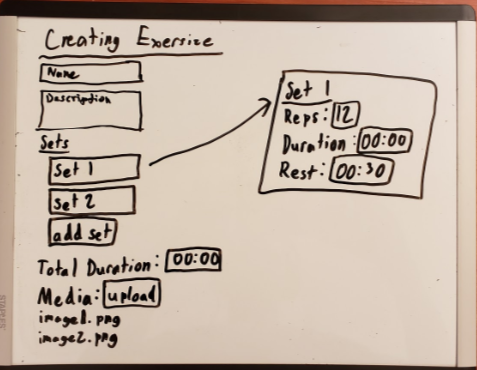 Creating Exersize
Name
Description
Sets
Set 1
set 2
add set
Total Duration: 00:00
Media: upload
image1.png
image2.png
Set 1
Reps: 12
Duration: 00:00
Rest: 00:30